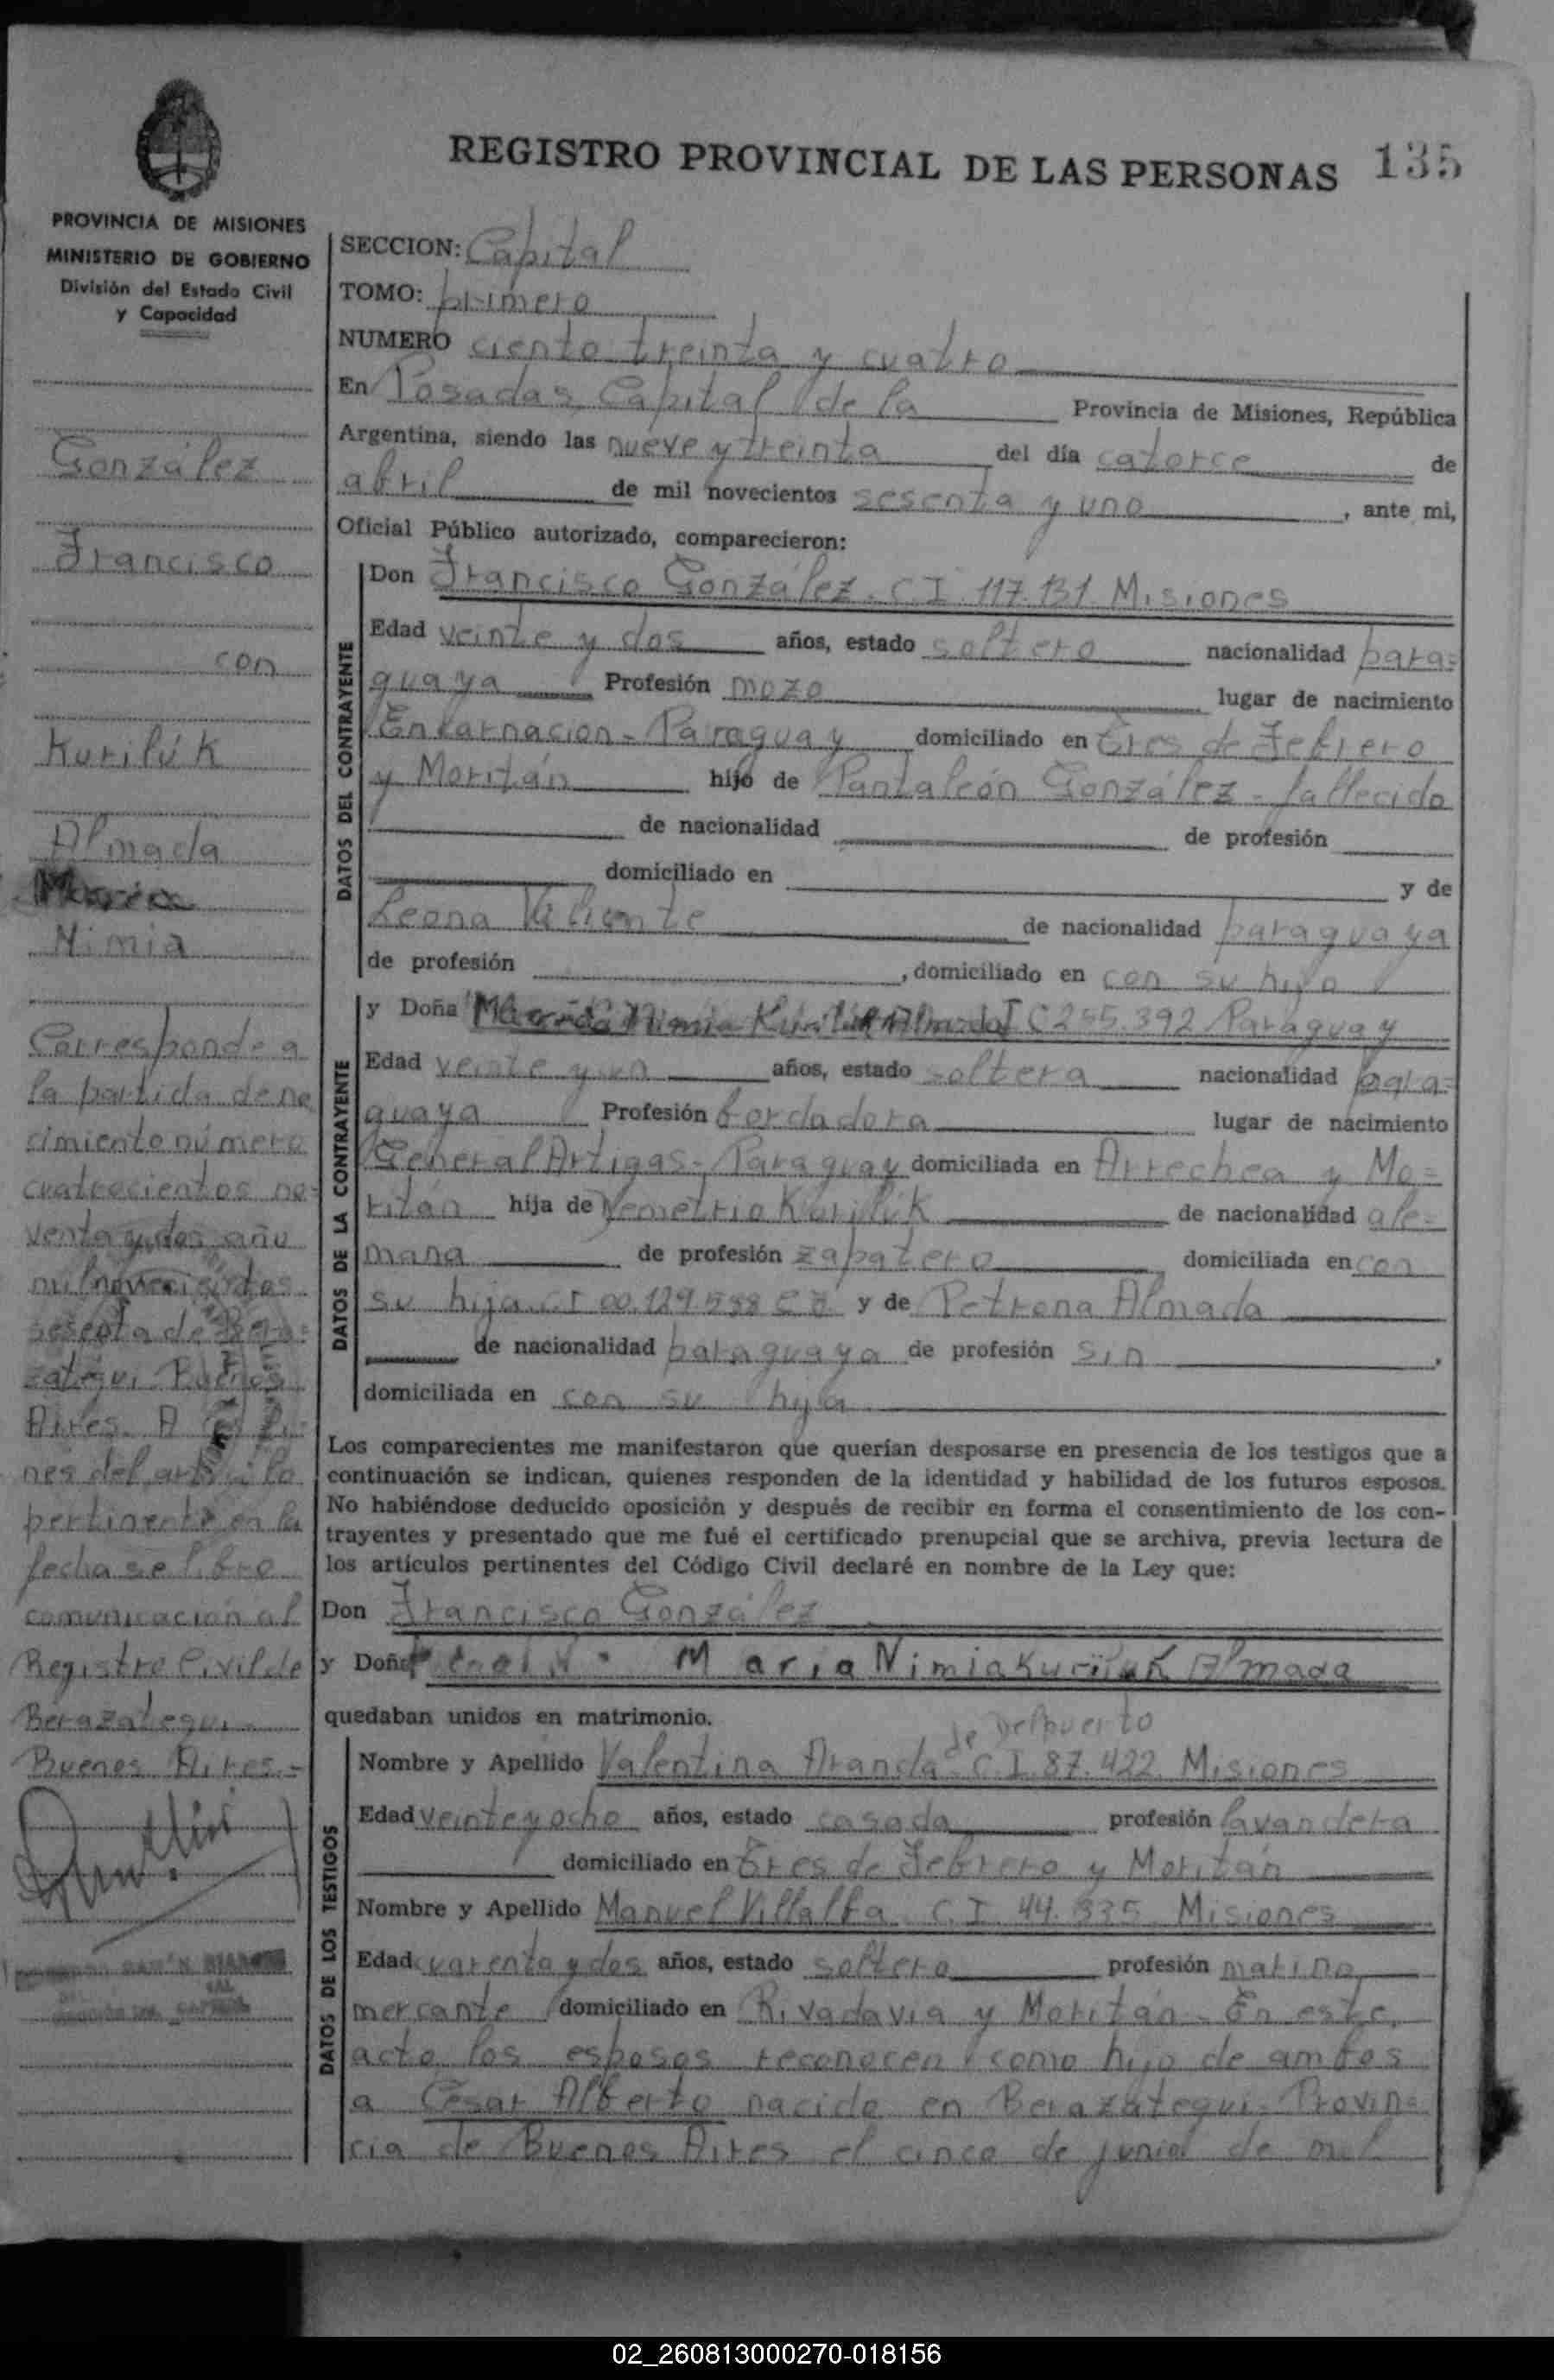 REGISTRO PROVINCIAL DE LAS PERSONAS 135
PROVINCIA DE MISIONES
MINISTERIO DE GOBIERNO
División del Estado Civil
y Capacidad
González
Francisco
con
Kurilúk
Almada
María
Nimia
Corresponde a
la partida de na
cimiento número
cuatrocientos no=
venta y dos año
mil novecientos
sesenta de Bera=
zategui Buenos
Aires. A fi=
nes del artículo
pertinente en la
fecha se libro
comunicación al
Registro Civil de
Berazategui.
Buenos Aires.=
SECCION: Capital
TOMO: primero
NUMERO ciento treinta y cuatro
En Posadas Capital de la Provincia de Misiones, República
Argentina, siendo las nueve y treinta del día catorce de
abril de mil novecientos sesenta y uno, ante mi,
Oficial Público autorizado, comparecieron:
DATOS DEL CONTRAYENTE
Don Francisco González. C.I. 117.131. Misiones
Edad veinte y dos años, estado soltero nacionalidad para=
guaya Profesión mozo lugar de nacimiento
Encarnacion - Paraguay domiciliado en tres de Febrero
y Moritán hijo de Pantaleón González - fallecido
de nacionalidad de profesión
domiciliado en y de
Leona Valiente de nacionalidad paraguaya
de profesión , domiciliado en con su hijo
DATOS DE LA CONTRAYENTE
y Doña María Nimia Kurilúk Almada I C 255.392 Paraguay
Edad veinte y un años, estado soltera nacionalidad para=
guaya Profesión bordadora lugar de nacimiento
General Artigas - Paraguay domiciliada en Arrechea y Mo=
ritán hija de Demetrio Kurilúk de nacionalidad ale=
mana de profesión zapatero domiciliada en con
su hija C.I 00.129.588 y de Petrona Almada
de nacionalidad paraguaya de profesión sin ,
domiciliada en con su hija
Los comparecientes me manifestaron que querían desposarse en presencia de los testigos que a
continuación se indican, quienes responden de la identidad y habilidad de los futuros esposos.
No habiéndose deducido oposición y después de recibir en forma el consentimiento de los con-
trayentes y presentado que me fué el certificado prenupcial que se archiva, previa lectura de
los artículos pertinentes del Código Civil declaré en nombre de la Ley que:
Don Francisco González
y Doña María Nimia Kurilúk Almada
quedaban unidos en matrimonio.
DATOS DE LOS TESTIGOS
de Delpuerto
Nombre y Apellido Valentina Aranda C.I. 87.422 Misiones
Edad veinte y ocho años, estado casada profesión lavandera
domiciliado en tres de Febrero y Moritán
Nombre y Apellido Manuel Villalba C.I 44.335 Misiones
Edad cuarenta y dos años, estado soltero profesión marino
mercante domiciliado en Rivadavia y Moritán - En este
acto los esposos reconocen como hijo de ambos
a César Alberto nacido en Berazategui - Provin=
cia de Buenos Aires el cinco de junio de mil
02_260813000270-018156